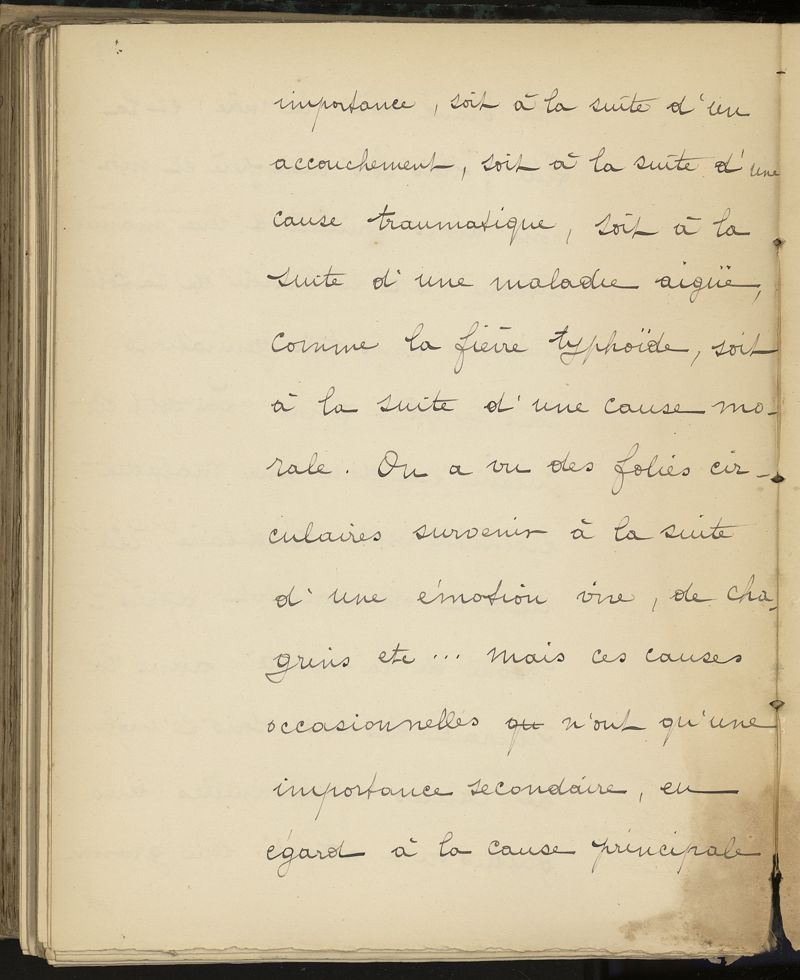 importance, soit à la suite d'un
accouchement, soit à la suite d'une
cause traumatique, soit à la
suite d'une maladie aigüe,
comme la fièvre typhoïde, soit
à la suite d'une cause mo-
rale. On a vu des folies cir-
culaires survenir à la suite
d'une émotion vive, de cha-
grins etc... mais ces causes
occasionnelles qu n'ont qu'une
importance secondaire, eu
égard à la cause principale